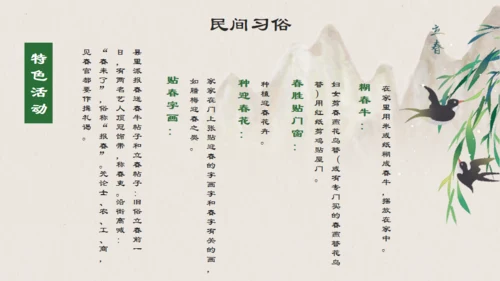 民间习俗
立春
糊春牛：
在家里用米或纸糊成春牛，摆放在家中。
春胜贴门窗：
妇女剪春燕花鸟簪（或有专门买的春燕簪花鸟
簪）用红纸剪鸡贴屋门。
种迎春花：
种植迎春花卉。
贴春字画：
家家在门上张贴迎春的字画和春字有关的画，
如腊梅迎春之类。
县里派报春送春牛帖子和立春帖子：旧俗立春前一
日，有两名艺人顶冠饰带，称春吏。沿街高喊：
“春来了”，俗称“报春”。无论士、农、工、商，
见春官都要作揖礼谒。
特色活动